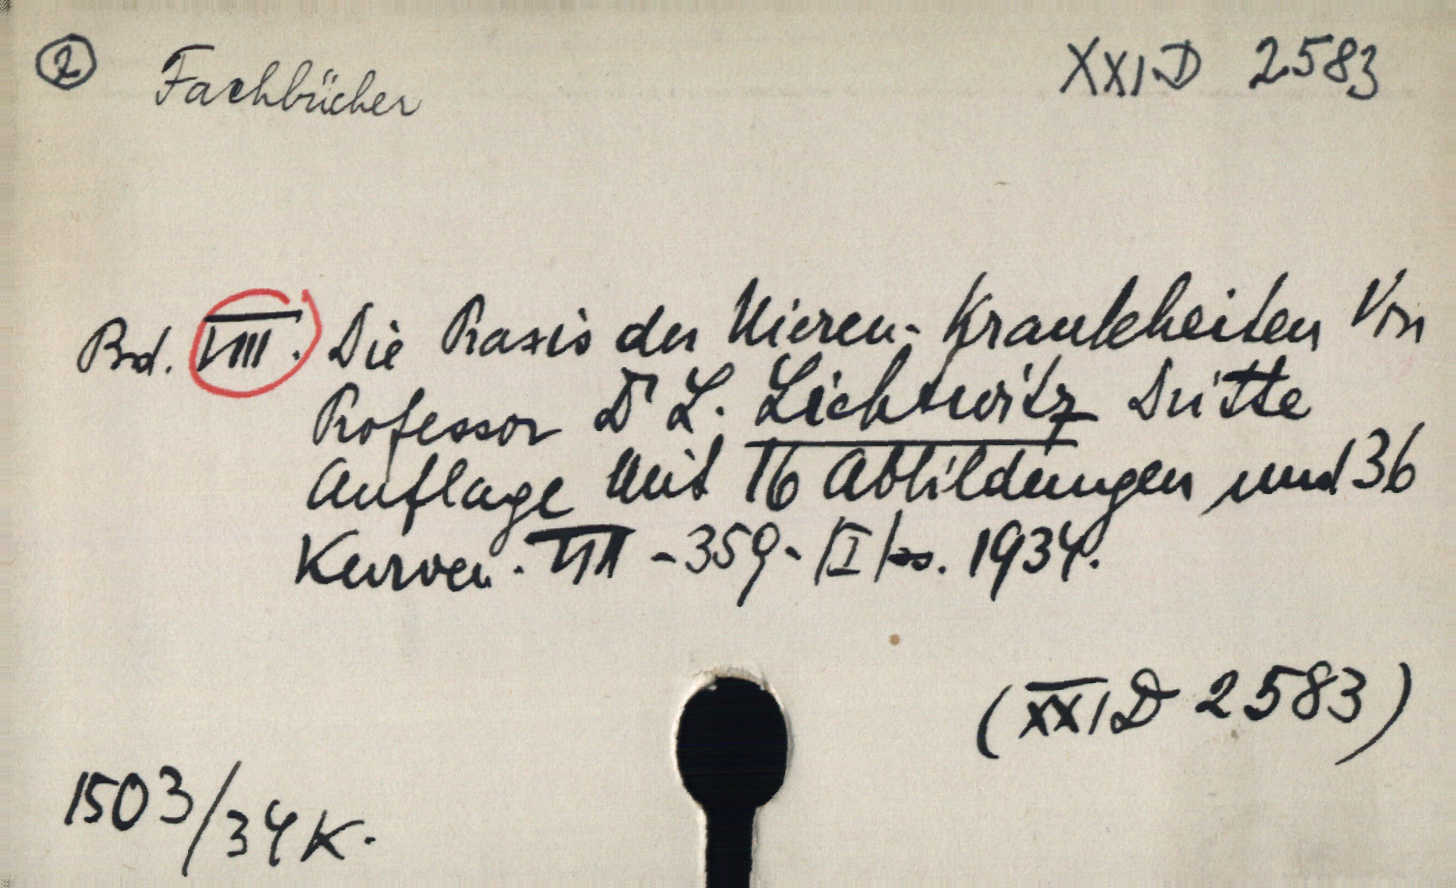 ② Fachbücher XXI D 2583
Bd. VIII. Die Praxis der Nieren-Krankheiten Von
Professor Dr L. Lichtwitz Dritte
Auflage Mit 16 Abbildungen und 36
Kurven. VIII - 359 - [I] ss. 1934.
(XXI D 2583)
1503/34 K.